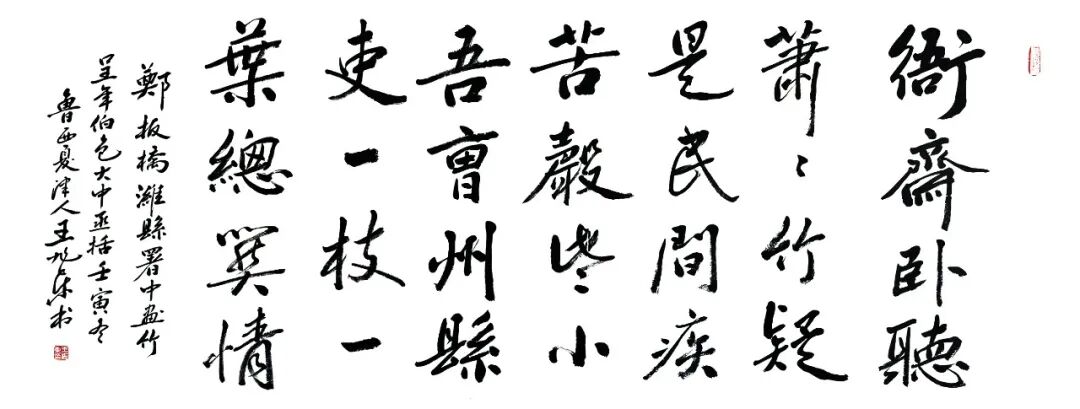 衙齋卧聽
蕭〻竹疑
是民間疾
苦聲些小
吾曹州縣
吏一枝一
葉總關情
鄭板橋濰縣署中畫竹
呈年伯包大中丞括壬寅冬
魯西夏津人王旭东书